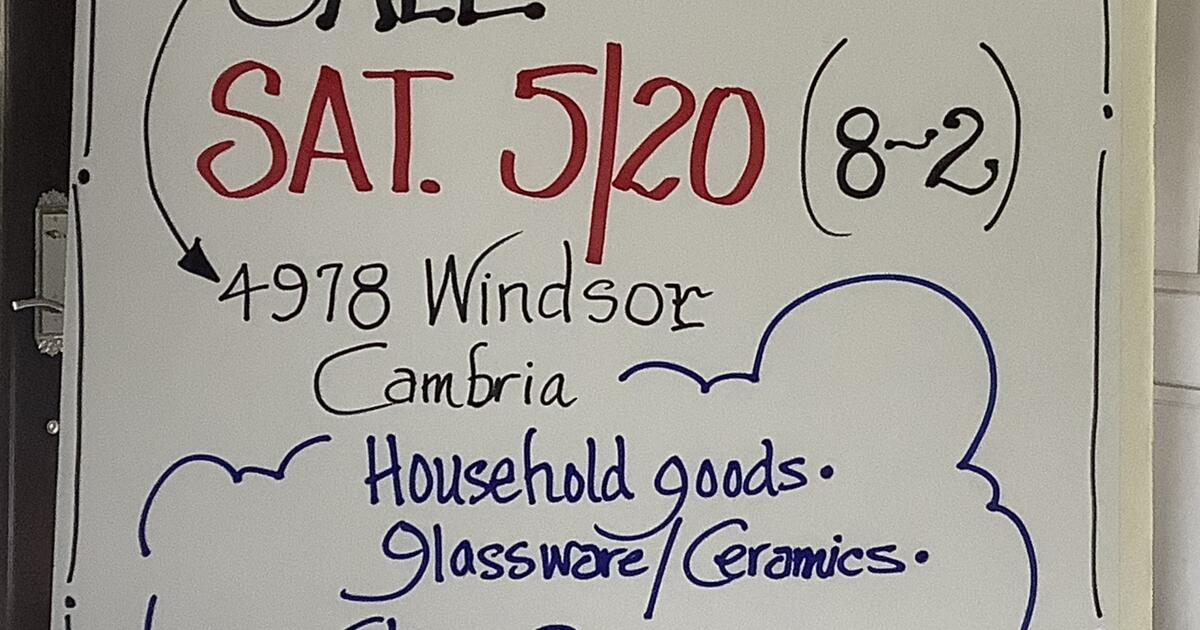 SAT. 5/20 (8~2)
4978 Windsor
Cambria
Household goods.
Glassware/Ceramics.